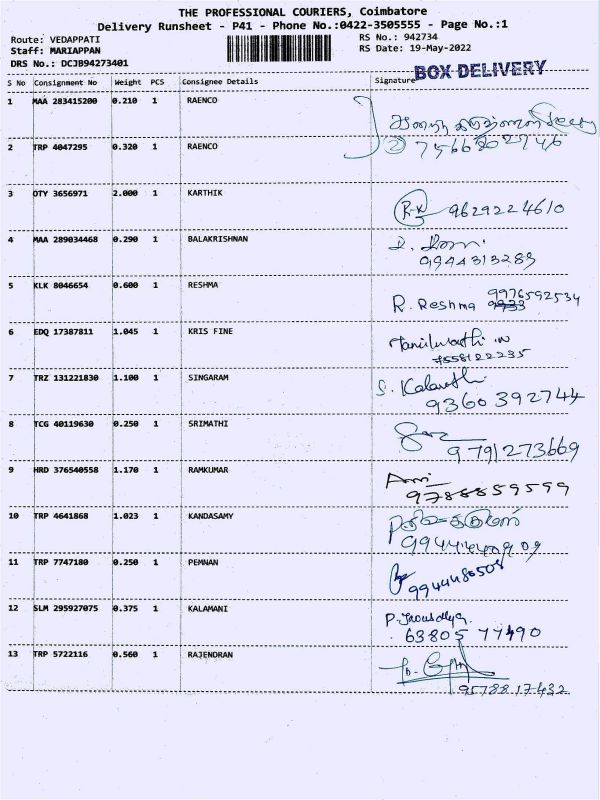 THE PROFESSIONAL COURIERS, Coimbatore
Delivery Runsheet - P41 - Phone No.:0422-3505555 - Page No.:1
Route: VEDAPPATI RS No.: 942734
Staff: MARIAPPAN RS Date: 19-May-2022
DRS No.: DCJB94273401
BOX DELIVERY
S No Consignment No Weight PCS Consignee Details Signature
1 MAA 283415200 0.210 1 RAENCO
2 TRP 4047295 0.320 1 RAENCO
3 OTY 3656971 2.000 1 KARTHIK R-K 9629224610
4 MAA 289034468 0.290 1 BALAKRISHNAN
9944313289
5 KLK 8046654 0.600 1 RESHMA R. Reshma 9976592534
6 EDQ 17387811 1.045 1 KRIS FINE
7558122235
7 TRZ 131221830 1.100 1 SINGARAM S.
9360392744
8 TCG 40119630 0.250 1 SRIMATHI
9791273669
9 HRD 376540558 1.170 1 RAMKUMAR
9788859599
10 TRP 4641868 1.023 1 KANDASAMY
11 TRP 7747180 0.250 1 PEMNAN
9944480508
12 SLM 295927075 0.375 1 KALAMANI P.
63805 77490
13 TRP 5722116 0.560 1 RAJENDRAN
95788 17432